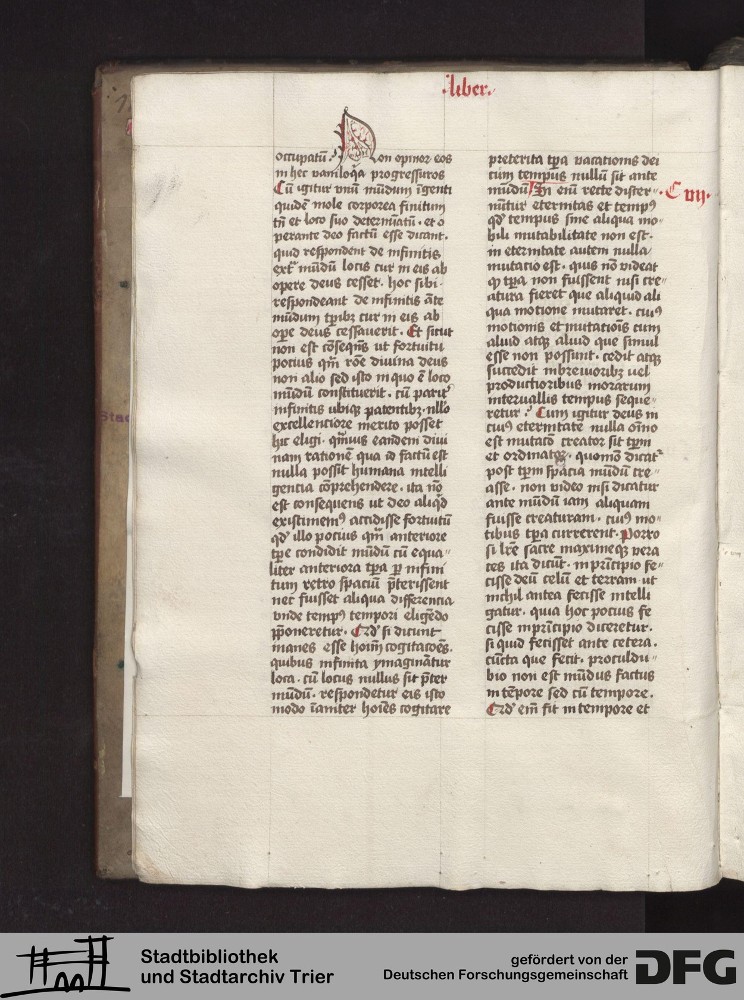 ·liber·
occupatū? Non opinor eos
in hec vaniloq̄a progressuros
Cū igitur vnū mūdum īgenti
quidē mole corporea finitum
tn̄ et loco suo determinatū· et o
perante deo factū esse dicant·
quid respondent de infinitis
extᵃ mūdū locis cur in eis ab
opere deus cesset· hoc sibi
respondeant de infinitis āte
mūdum tp̄ibꝫ cur in eis ab
oꝑe deus cessauerit· Et sicut
non est cōseqn̄s ut fortuitu
pocius qm̄ rōe diuina deus
non alio sed isto in quo ē loco
mūdū constituerit· cū pariťˀ
infinitis ubiqꝫ patentibꝫ· nllō
excellenciore merito posset
hic eligi· qm̄uis eandem diui
nam rationē qua id factū est
nulla possit humana intelli
gentia cōprehendere· ita nō
est consequens ut deo aliqd̄
existimemꝰ accidisse fortuitū
qd̄ illo pocius qm̄ anteriore
tꝑe condidit mūdū cū equa-
liter anteriora tp̄a ꝑ infini
tum retro spaciū p̄terissent
nec fuisset aliqua differencia
vnde tempꝰ tempori eligēdo
p̄poneretur· Qd̄ si dicunt
inanes esse hoīm cogitacoēs·
quibus infinita ymaginātur
loca· cū locus nullus sit p̄ter
mūdū· respondetur eis isto
modo īaniter hoīes cogitare
preterita tp̄a vacationis dei
cum tempus nullū sit ante
mūdū Si em̄ recte discer-
nūtur eternitas et tempꝰ
qd̄ tempus sine aliqua mo-
bili mutabilitate non est·
in eternitate autem nulla
mutacio est· quis nō videat
ꝙ tp̄a non fuissent nisi cre-
atura fieret que aliquid ali
qua motione mutaret· cuiꝰ
motionis et mutatiōis cum
aliud atqꝫ aliud que simul
esse non possunt· cedit atqꝫ
succedit in breuioribꝫ vel
productioribus morarum
interuallis tempus seque-
retur? Cum igitur deus in
cuiꝰ eternitate nulla oīno
est mutatō creator sit tp̄m
et ordinator· quomō dicatᷣ
post tp̄m spacia mūdū cre-
asse· non video nisi dicatur
ante mūdū iam aliquam
fuisse creaturam· cuiꝰ mo-
tibus tp̄a currerent· Porro
si lr̄e sacre maximeqꝫ vera
ces ita dicūt· in prīcipio fe-
cisse deū celū et terram· ut
nichil antea fecisse intelli
gatur· quia hoc pocius fe
cisse in prīcipio diceretur·
si quid fecisset ante cetera·
cūcta que fecit· proculdu-
bio non est mūdus factus
in tēpore sed cū tempore·
Qd̄ em̄ fit in tempore et
·C vi·
Stadtbibliothek
und Stadtarchiv Trier
gefördert von der
Deutschen Forschungsgemeinschaft
DFG